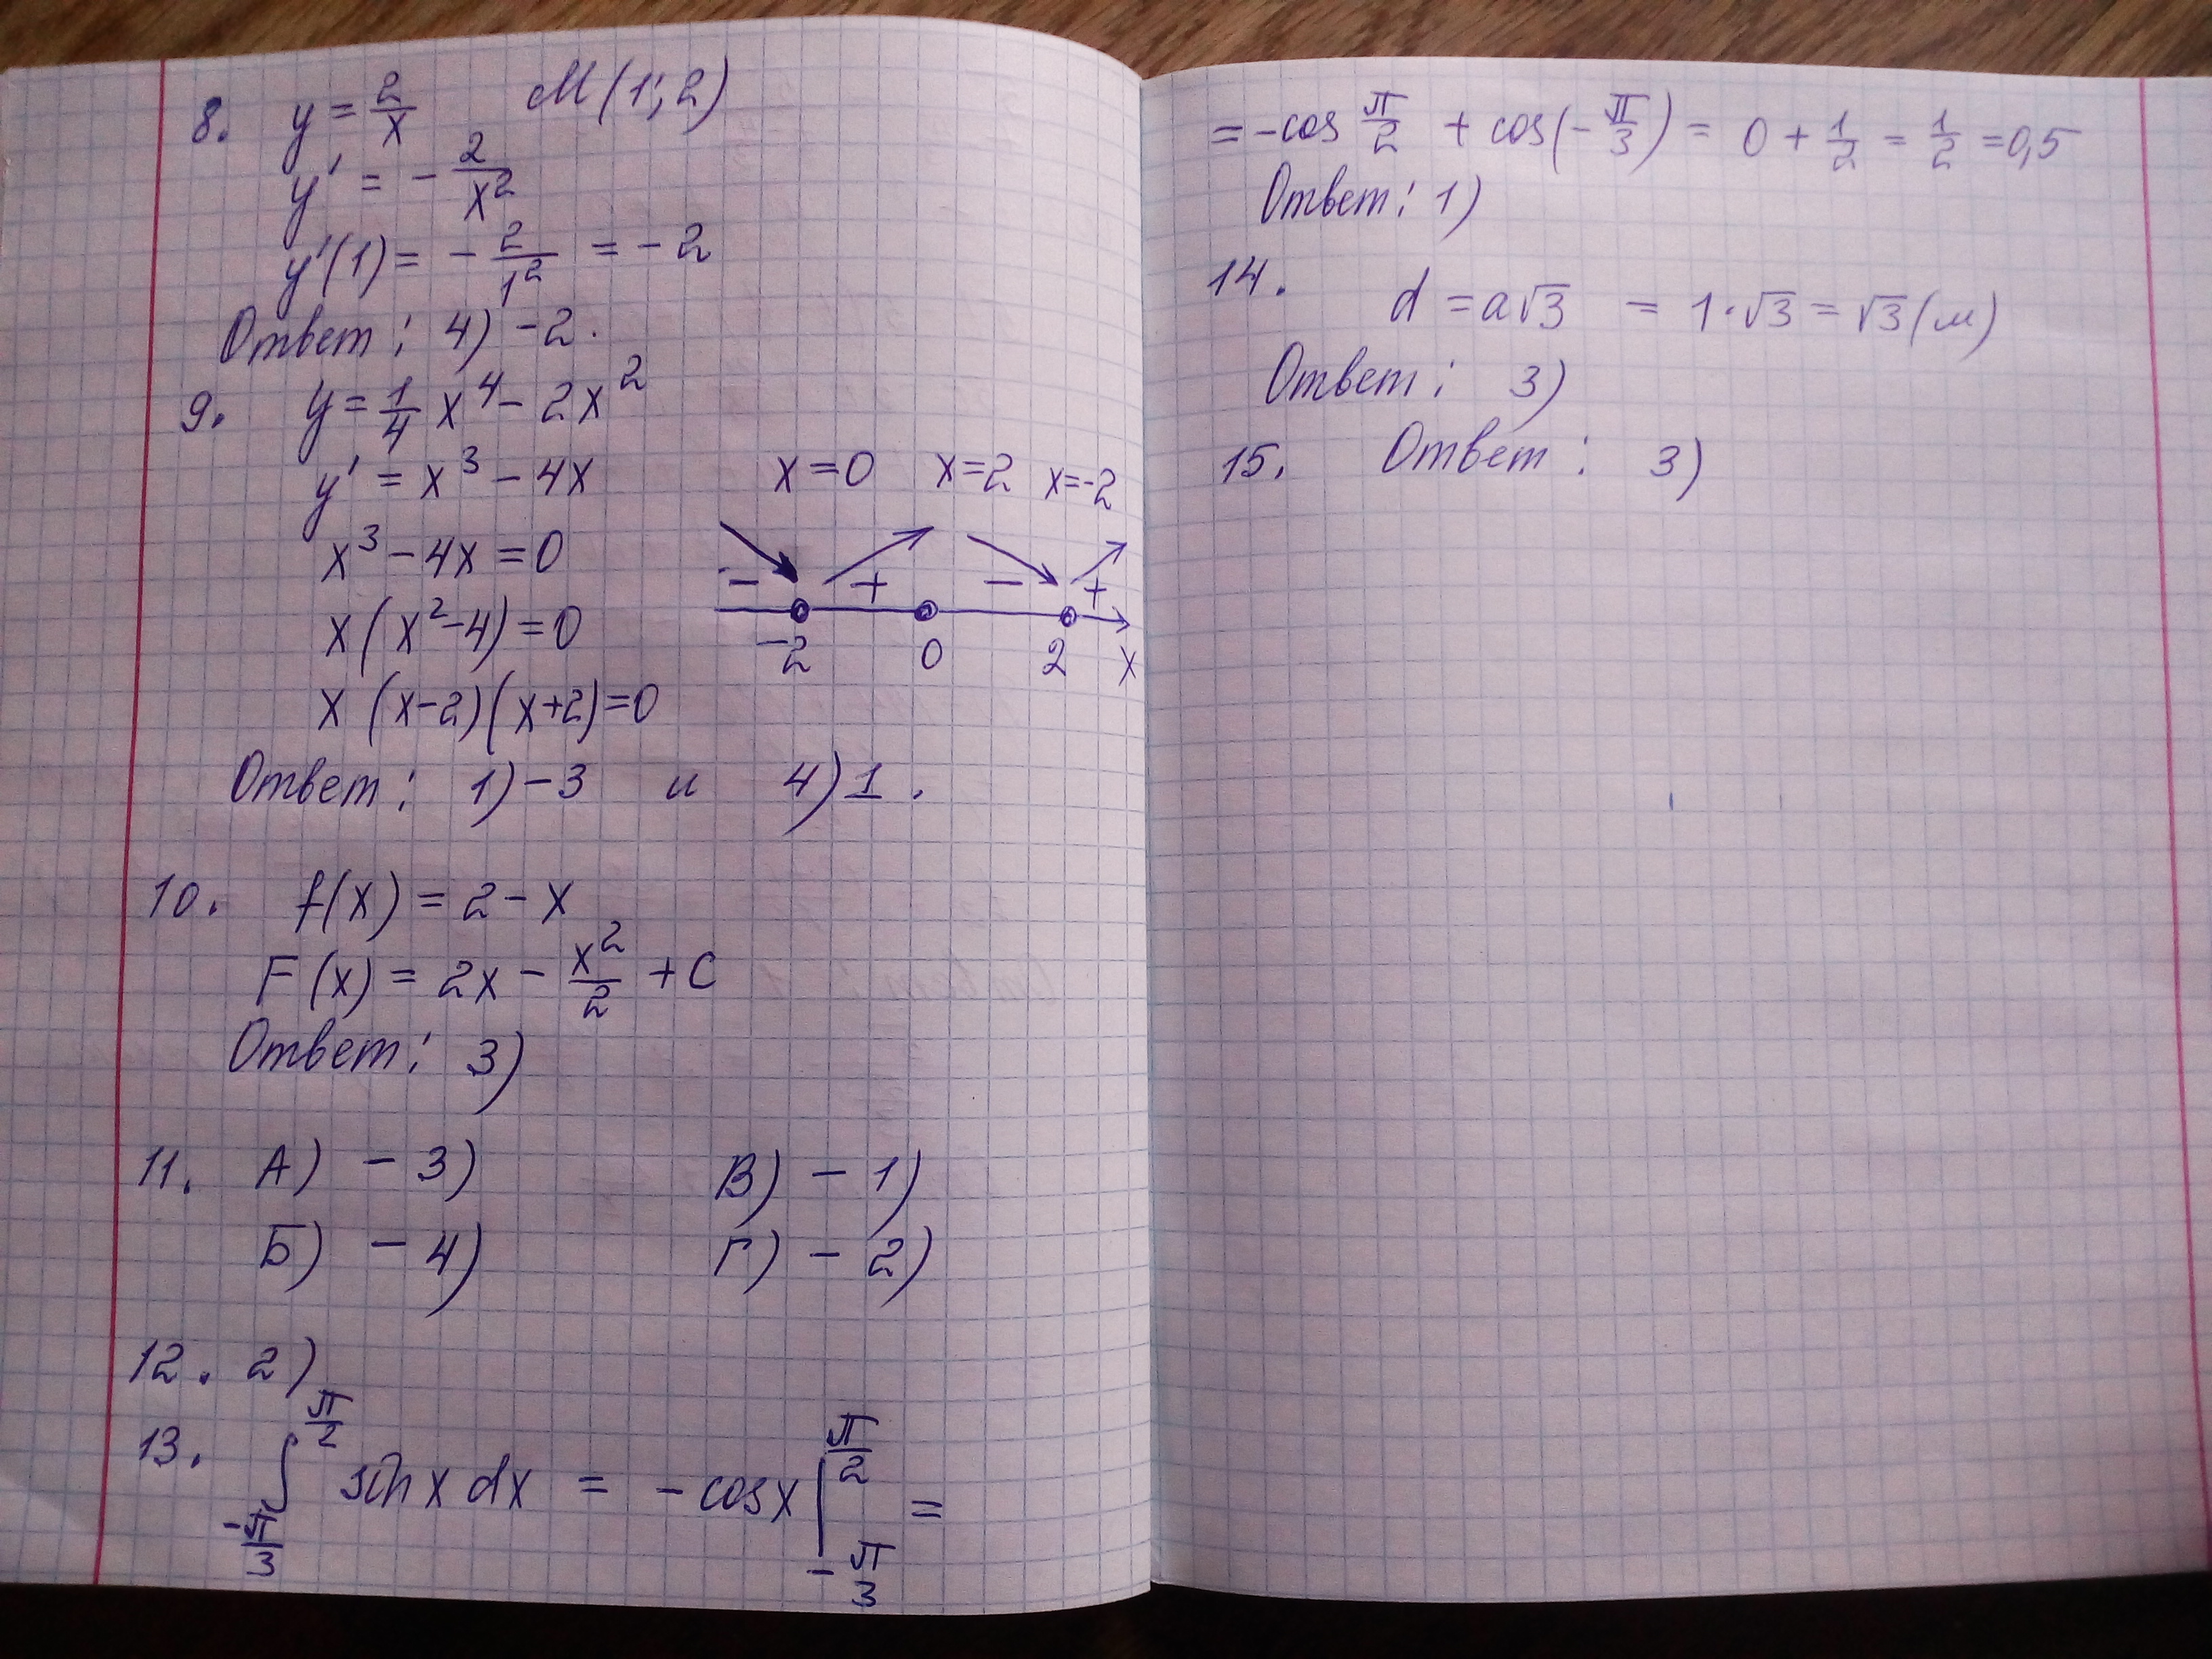 8. y = 2/x M(1; 2)
y' = - 2/x²
y'(1) = - 2/1² = - 2
Ответ: 4) -2.
9. y = 1/4 x⁴ - 2x²
y' = x³ - 4x x=0 x=2 x=-2
x³ - 4x = 0
- + - +
x(x²-4)=0
-2 0 2 x
x(x-2)(x+2)=0
Ответ: 1) -3 и 4) 1.
10. f(x) = 2 - x
F(x) = 2x - x²/2 + C
Ответ: 3)
11. А) - 3) В) - 1)
Б) - 4) Г) - 2)
12. 2)
13. ∫_{-π/3}^{π/2} sin x dx = - cos x |_{-π/3}^{π/2} =
= -cos π/2 + cos(-π/3) = 0 + 1/2 = 1/2 = 0,5
Ответ: 1)
14. d = a√3 = 1·√3 = √3 (м)
Ответ: 3)
15. Ответ: 3)